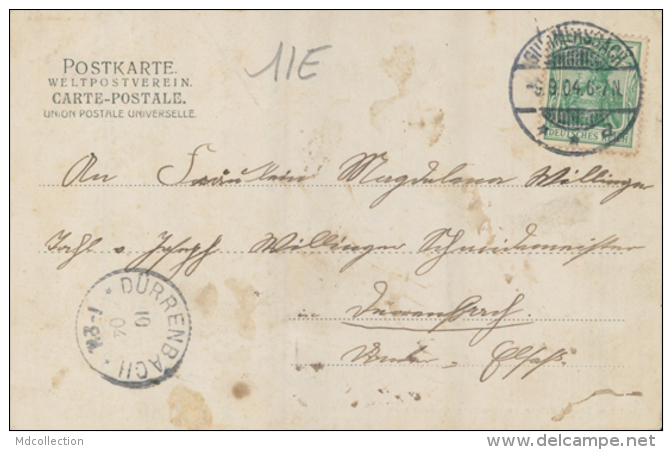 POSTKARTE.
WELTPOSTVEREIN.
CARTE-POSTALE.
UNION POSTALE UNIVERSELLE.
11E
GUMMERSBACH
9.9.04.6-7N.
DEUTSCHES REICH
An Fräulein Magdalena Willinger
v. Joseph Willinger Schneidermeister
in Dürrenbach
Unter-Elsaß.
DÜRRENBACH
10
04
Mdcollection
www.delcampe.net